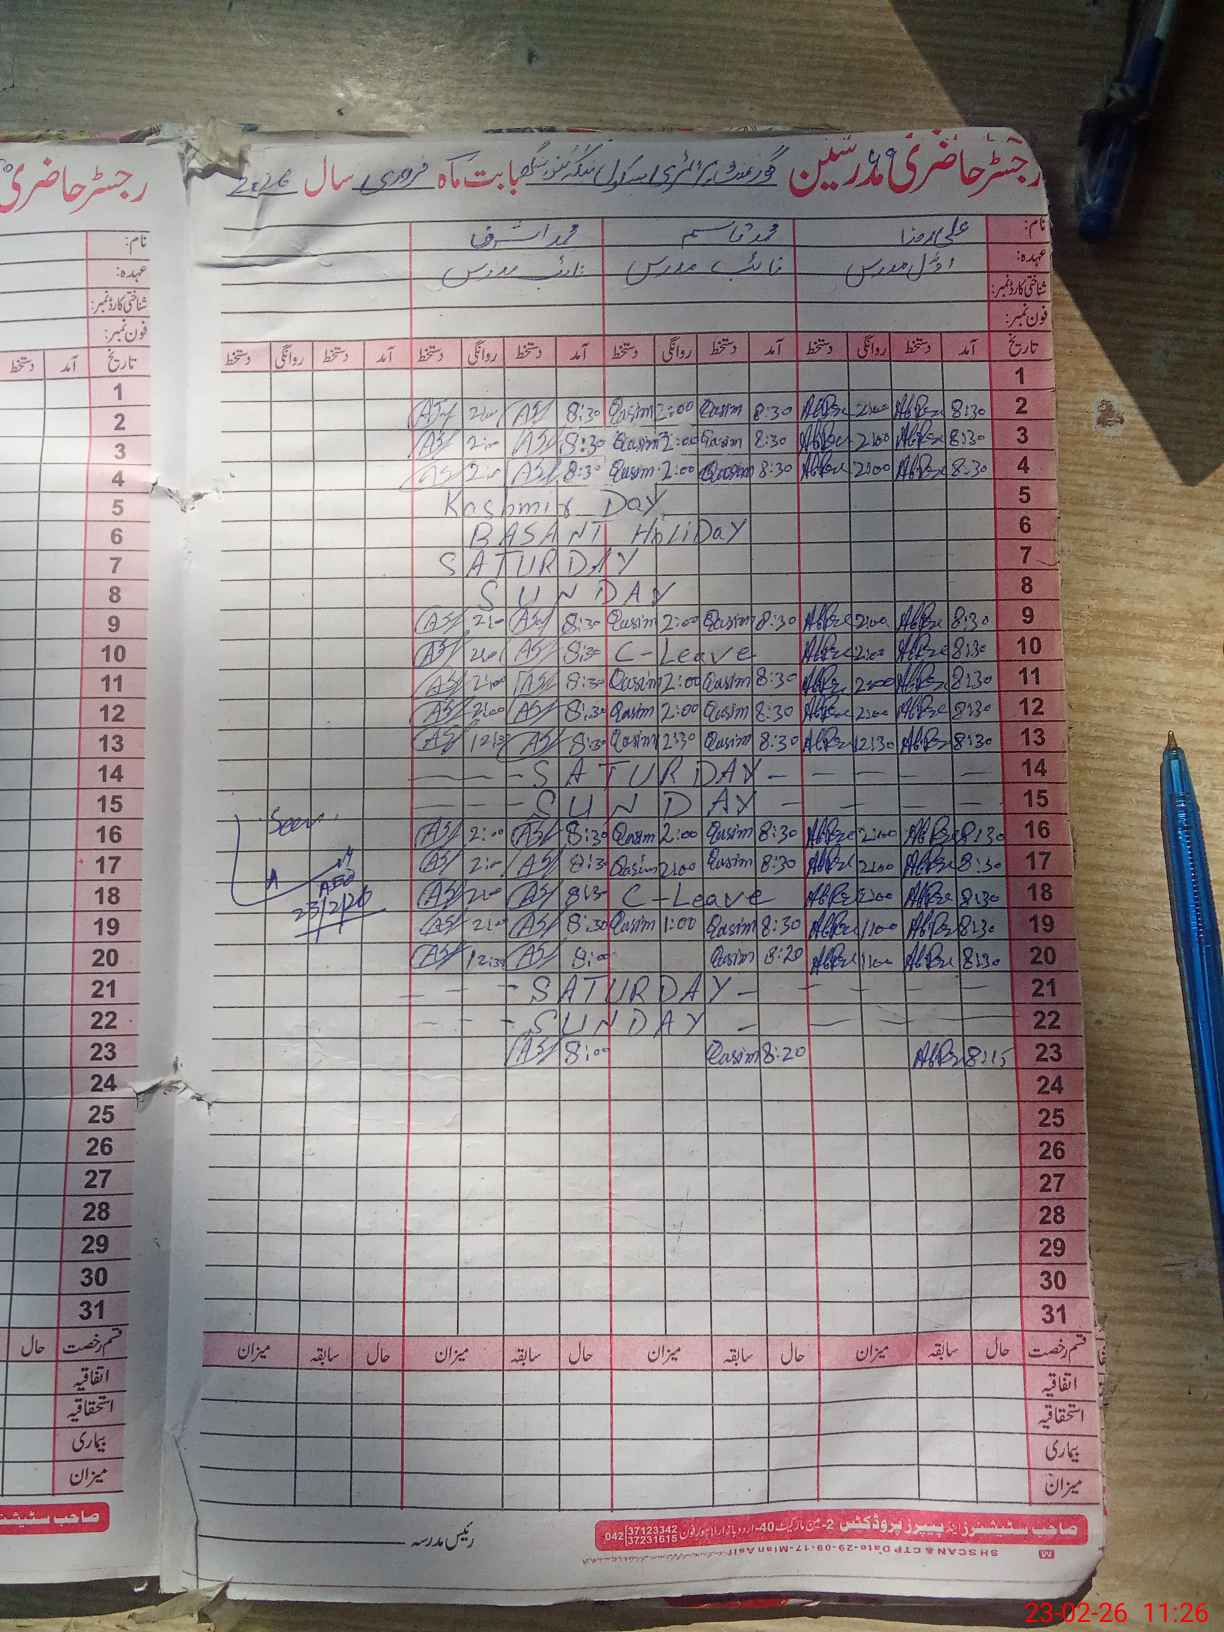 رجسٹر حاضری مدرسین گورنمنٹ پرائمری سکول بابت ماہ فروری سال 2026
نام: علی رضا محمد قاسم محمد اشرف
عہدہ: اول مدرس نائب مدرس نائب مدرس
شناختی کارڈ نمبر:
فون نمبر:
تاریخ آمد دستخط روانگی دستخط آمد دستخط روانگی دستخط آمد دستخط روانگی دستخط آمد دستخط روانگی دستخط
1
2 8:30 2:00 8:30 Qasim 2:00 Qasim 8:30 2:00
3 8:30 2:00 8:30 Qasim 2:00 Qasim 8:30 2:00
4 8:30 2:00 8:30 Qasim 2:00 Qasim 8:30 2:00
5 Kashmir Day
6 BASANT HoliDaY
7 SATURDAY
8 SUNDAY
9 8:30 2:00 8:30 Qasim 2:00 Qasim 8:30 2:00
10 8:30 2:00 C-Leave 8:30 2:00
11 8:30 2:00 8:30 Qasim 2:00 Qasim 8:30 2:00
12 8:30 2:00 8:30 Qasim 2:00 Qasim 8:30 2:00
13 8:30 12:30 8:30 Qasim 12:30 Qasim 8:30 12:30
14 SATURDAY
15 SUNDAY
16 8:30 2:00 8:30 Qasim 2:00 Qasim 8:30 2:00
17 8:30 2:00 8:30 Qasim 2:00 Qasim 8:30 2:00
18 8:30 2:00 C-Leave 8:30 2:00
19 8:30 1:00 8:30 Qasim 1:00 Qasim 8:30 2:00
20 8:30 1:00 8:20 Qasim 8:00 12:30
21 SATURDAY
22 SUNDAY
23 8:15 8:20 Qasim 8:00
24
25
26
27
28
29
30
31
Seen
AEO
23/2/26
قسم رخصت حال سابقہ میزان حال سابقہ میزان حال سابقہ میزان حال سابقہ میزان
اتفاقیہ
استحقاقیہ
بیماری
میزان
صاحب سٹیشنرز اینڈ پیپرز پروڈکٹس 2-من مارکیٹ 40-اردو بازار لاہور فون 042 37123342 37231615
رئیس مدرسہ
SH SCAN & CTP Date-29-09-17-Mian Asif
رجسٹر حاضری
نام:
عہدہ:
شناختی کارڈ نمبر:
فون نمبر:
تاریخ آمد دستخط
1
2
3
4
5
6
7
8
9
10
11
12
13
14
15
16
17
18
19
20
21
22
23
24
25
26
27
28
29
30
31
قسم رخصت حال
اتفاقیہ
استحقاقیہ
بیماری
میزان
صاحب سٹیشنرز
23-02-26 11:26